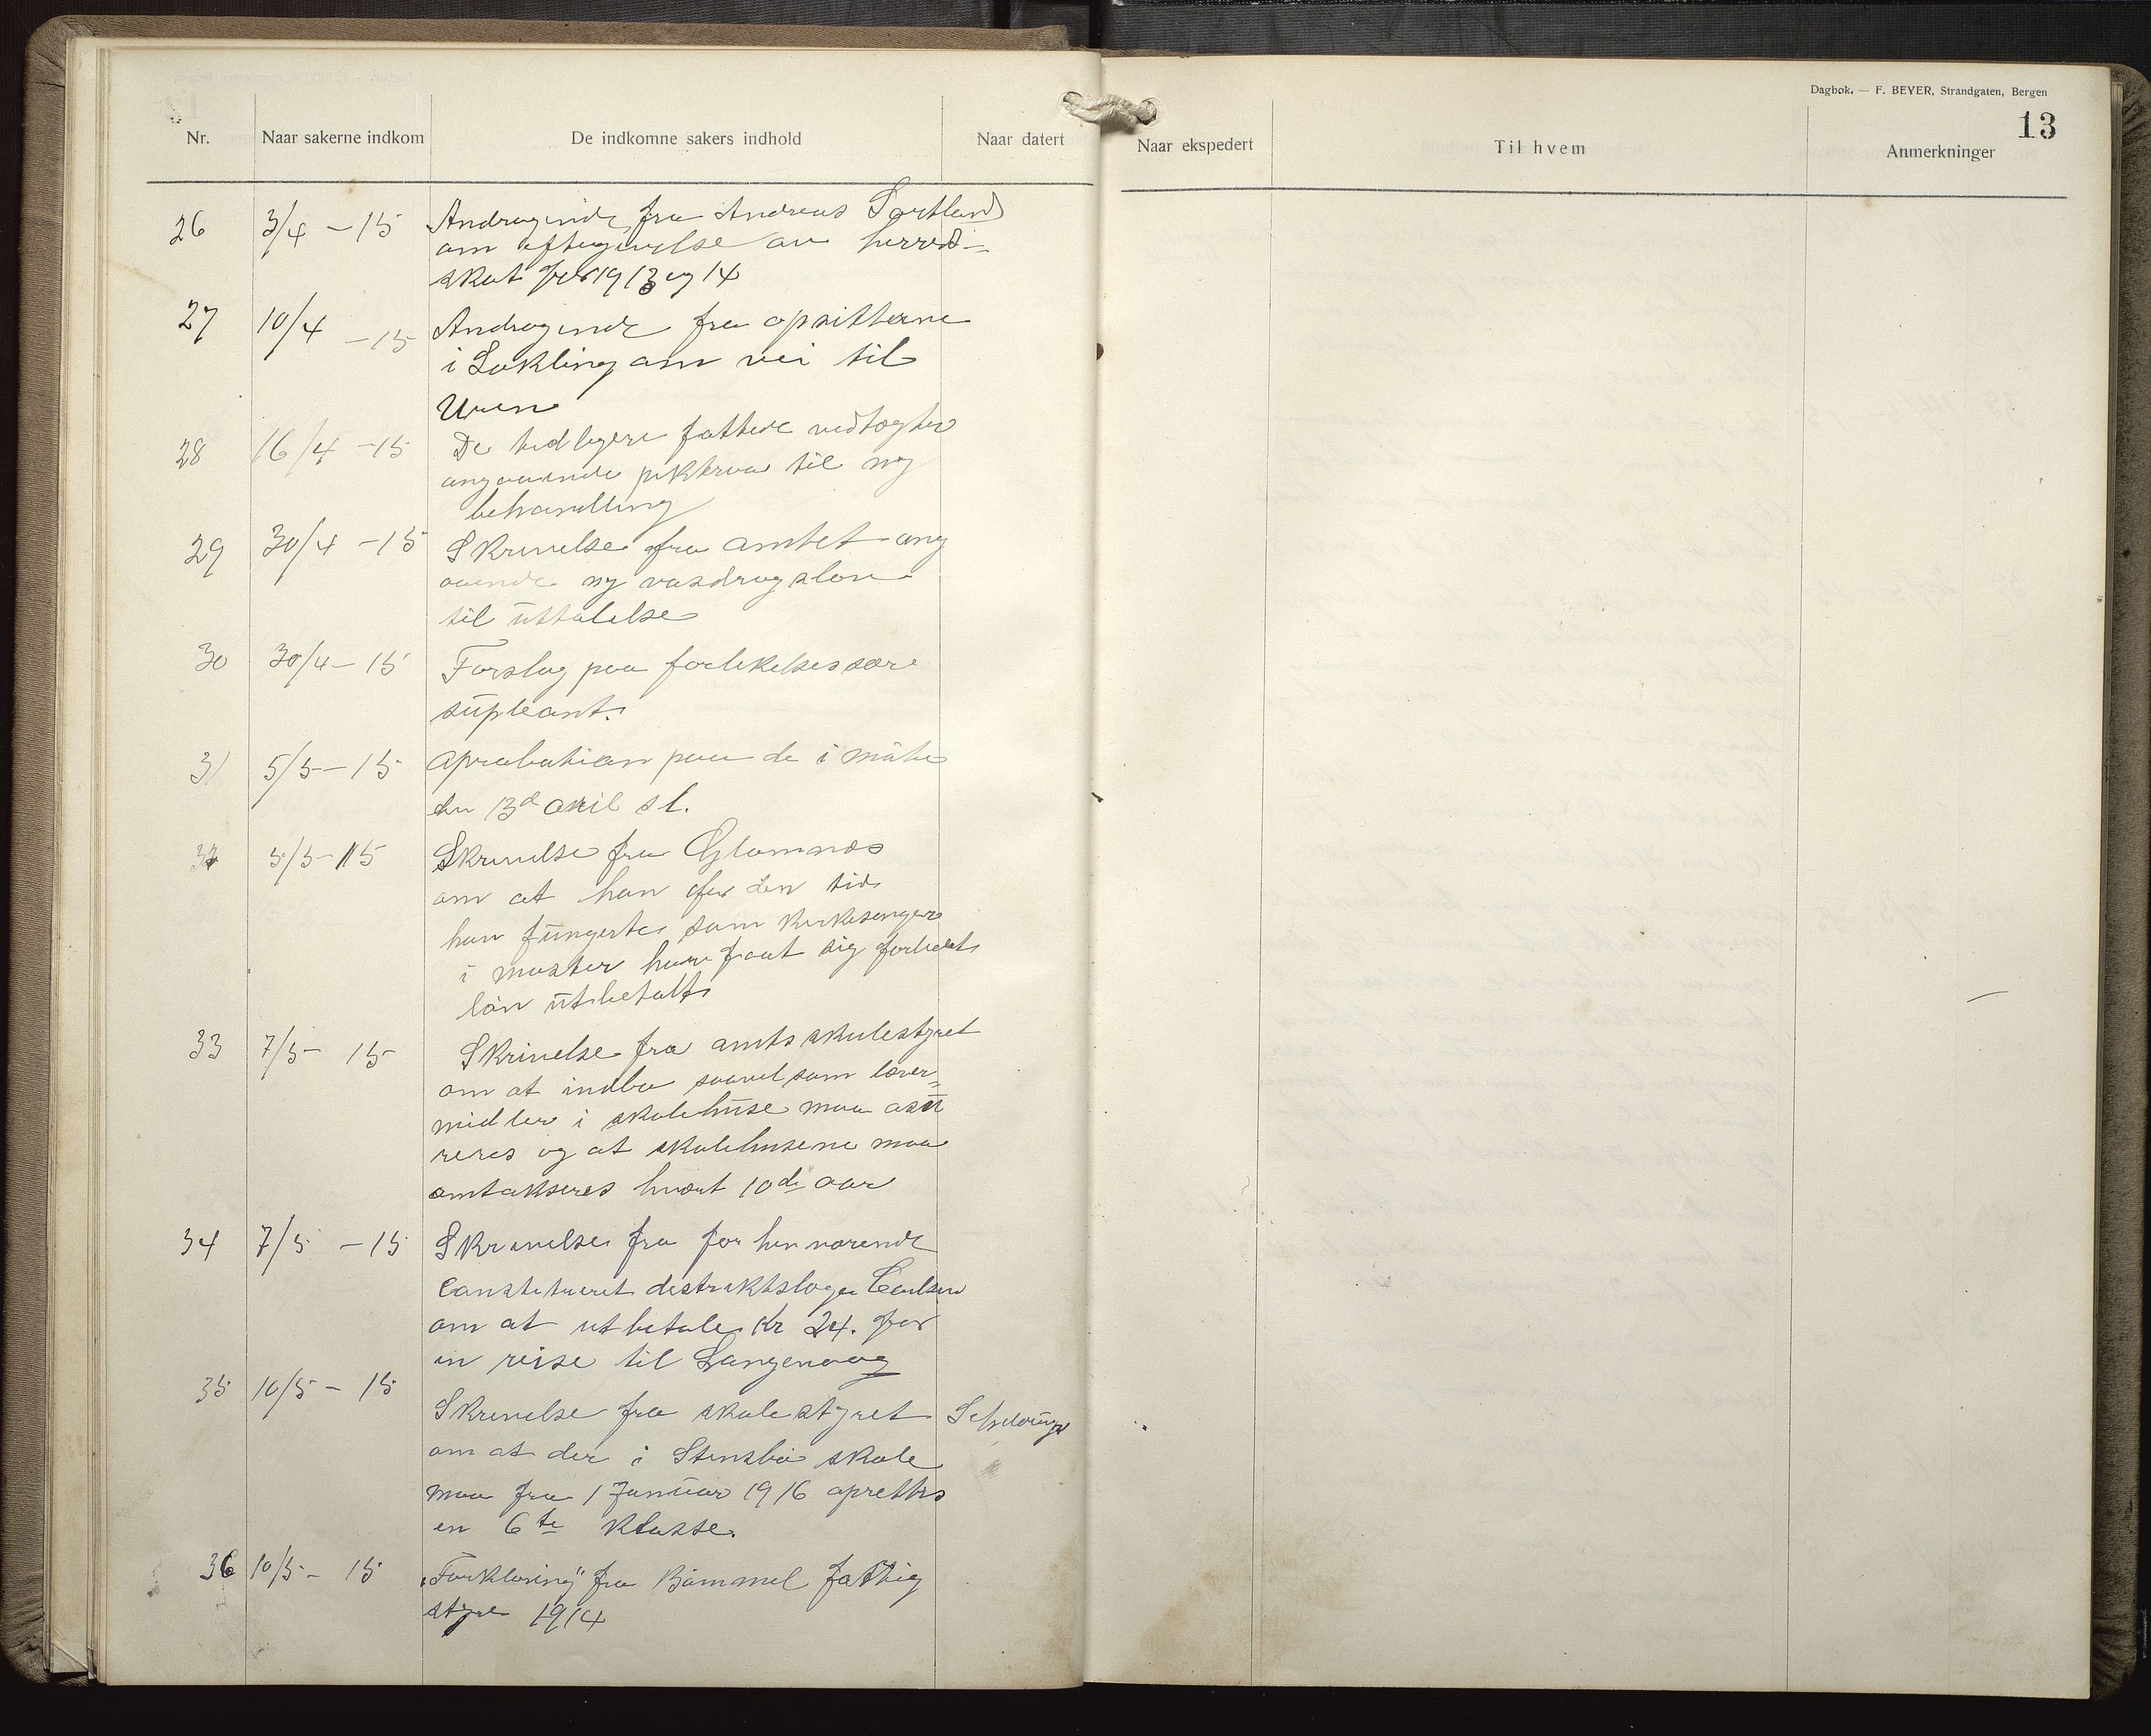 Dagbok. — F. BEYER, Strandgaten, Bergen
13
Nr. Naar sakerne indkom De indkomne sakers indhold Naar datert Naar ekspedert Til hvem Anmerkninger
26 3/4 - 15 Andragende fra Andreas Sortland
om eftergivelse av herred-
skat for 1913 og 14
27 10/4 - 15 Andragende fra opsitterne
i Lokling om vei til
Uren
28 16/4 - 15 De tidligere fattede vedtogter
angaaende piktraa til ny
behandling
29 30/4 - 15 Skrivelse fra amtet ang
aaende ny vasdragslov
til üttalelse
30 30/4 - 15 Forslag paa forlikelseskom
süpleant.
31 5/5 - 15 Aprobation paa de i möte
den 13d april sl.
32 5/5 - 15 Skrivelse fra Glomnæs
om at han for den tid
han füngerte som kirkesanger
i moster har faat sig forholdt
lön ütbetalt
33 7/5 - 15 Skrivelse fra amtsskulestyret
om at indbo saavel som lærer-
midler i skolehüse maa asü
reres og at skolehusene maa
omtakseres hvært 10de aar
34 7/5 - 15 Skrivelse fra forhenværende
Constitueret distriktslæge Carlsen
om at utbetale Kr 24. for
en reise til Langevaag
35 10/5 - 15
Skrivelse fra skolestyret
om at der i Stensbö skole
maa fra 1 Janüar 1916 oprettes
en 6te klasse.
36 10/5 - 15 "Forklaring" fra Bömmel fattig
styre 1914